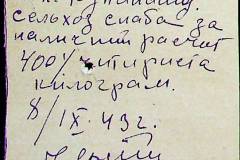 сельхоз снаба за
наличий расчет
400% читириста
килограм.
8/IX-43 г.